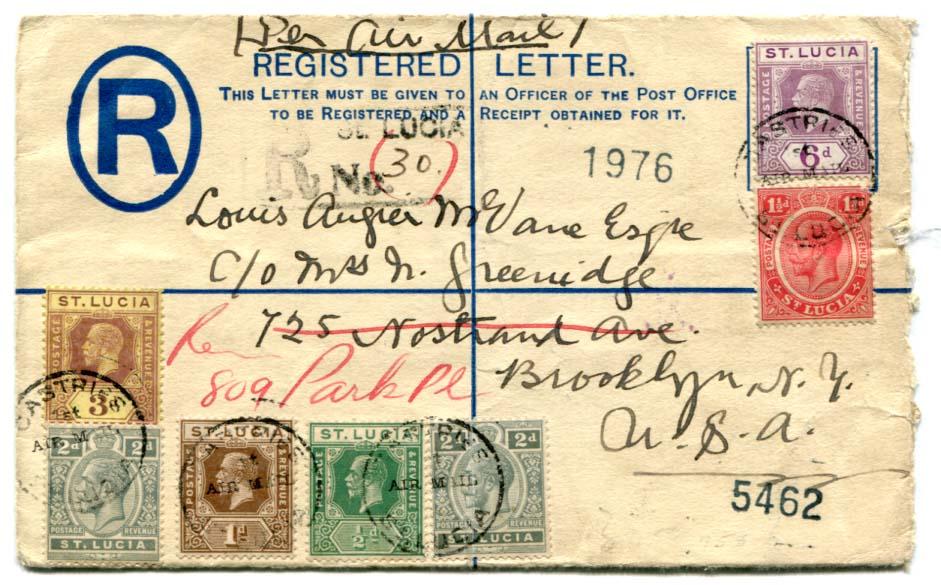 Per Air Mail
REGISTERED LETTER.
THIS LETTER MUST BE GIVEN TO AN OFFICER OF THE POST OFFICE
TO BE REGISTERED, AND A RECEIPT OBTAINED FOR IT.
R
ST. LUCIA
R No. 30.
1976
ST. LUCIA
POSTAGE & REVENUE
6d
CASTRIES
AIR MAIL
ST. LUCIA
1½d 1½d
POSTAGE REVENUE
ST. LUCIA
Louis Augier McVane Esqre
C/o Mrs N. Greenidge
725 Nostrand Ave.
809 Park Pl
Brooklyn, N.Y.
U.S.A.
5462
ST. LUCIA
POSTAGE & REVENUE
3d
CASTRIES
1st
AIR MAIL
2d 2d
POSTAGE REVENUE
ST. LUCIA
ST. LUCIA
POSTAGE & REVENUE
1d
AIR MAIL
ST. LUCIA
POSTAGE & REVENUE
½d
CASTRIES
AIR MAIL
ST. LUCIA
2d 2d
POSTAGE REVENUE
ST. LUCIA